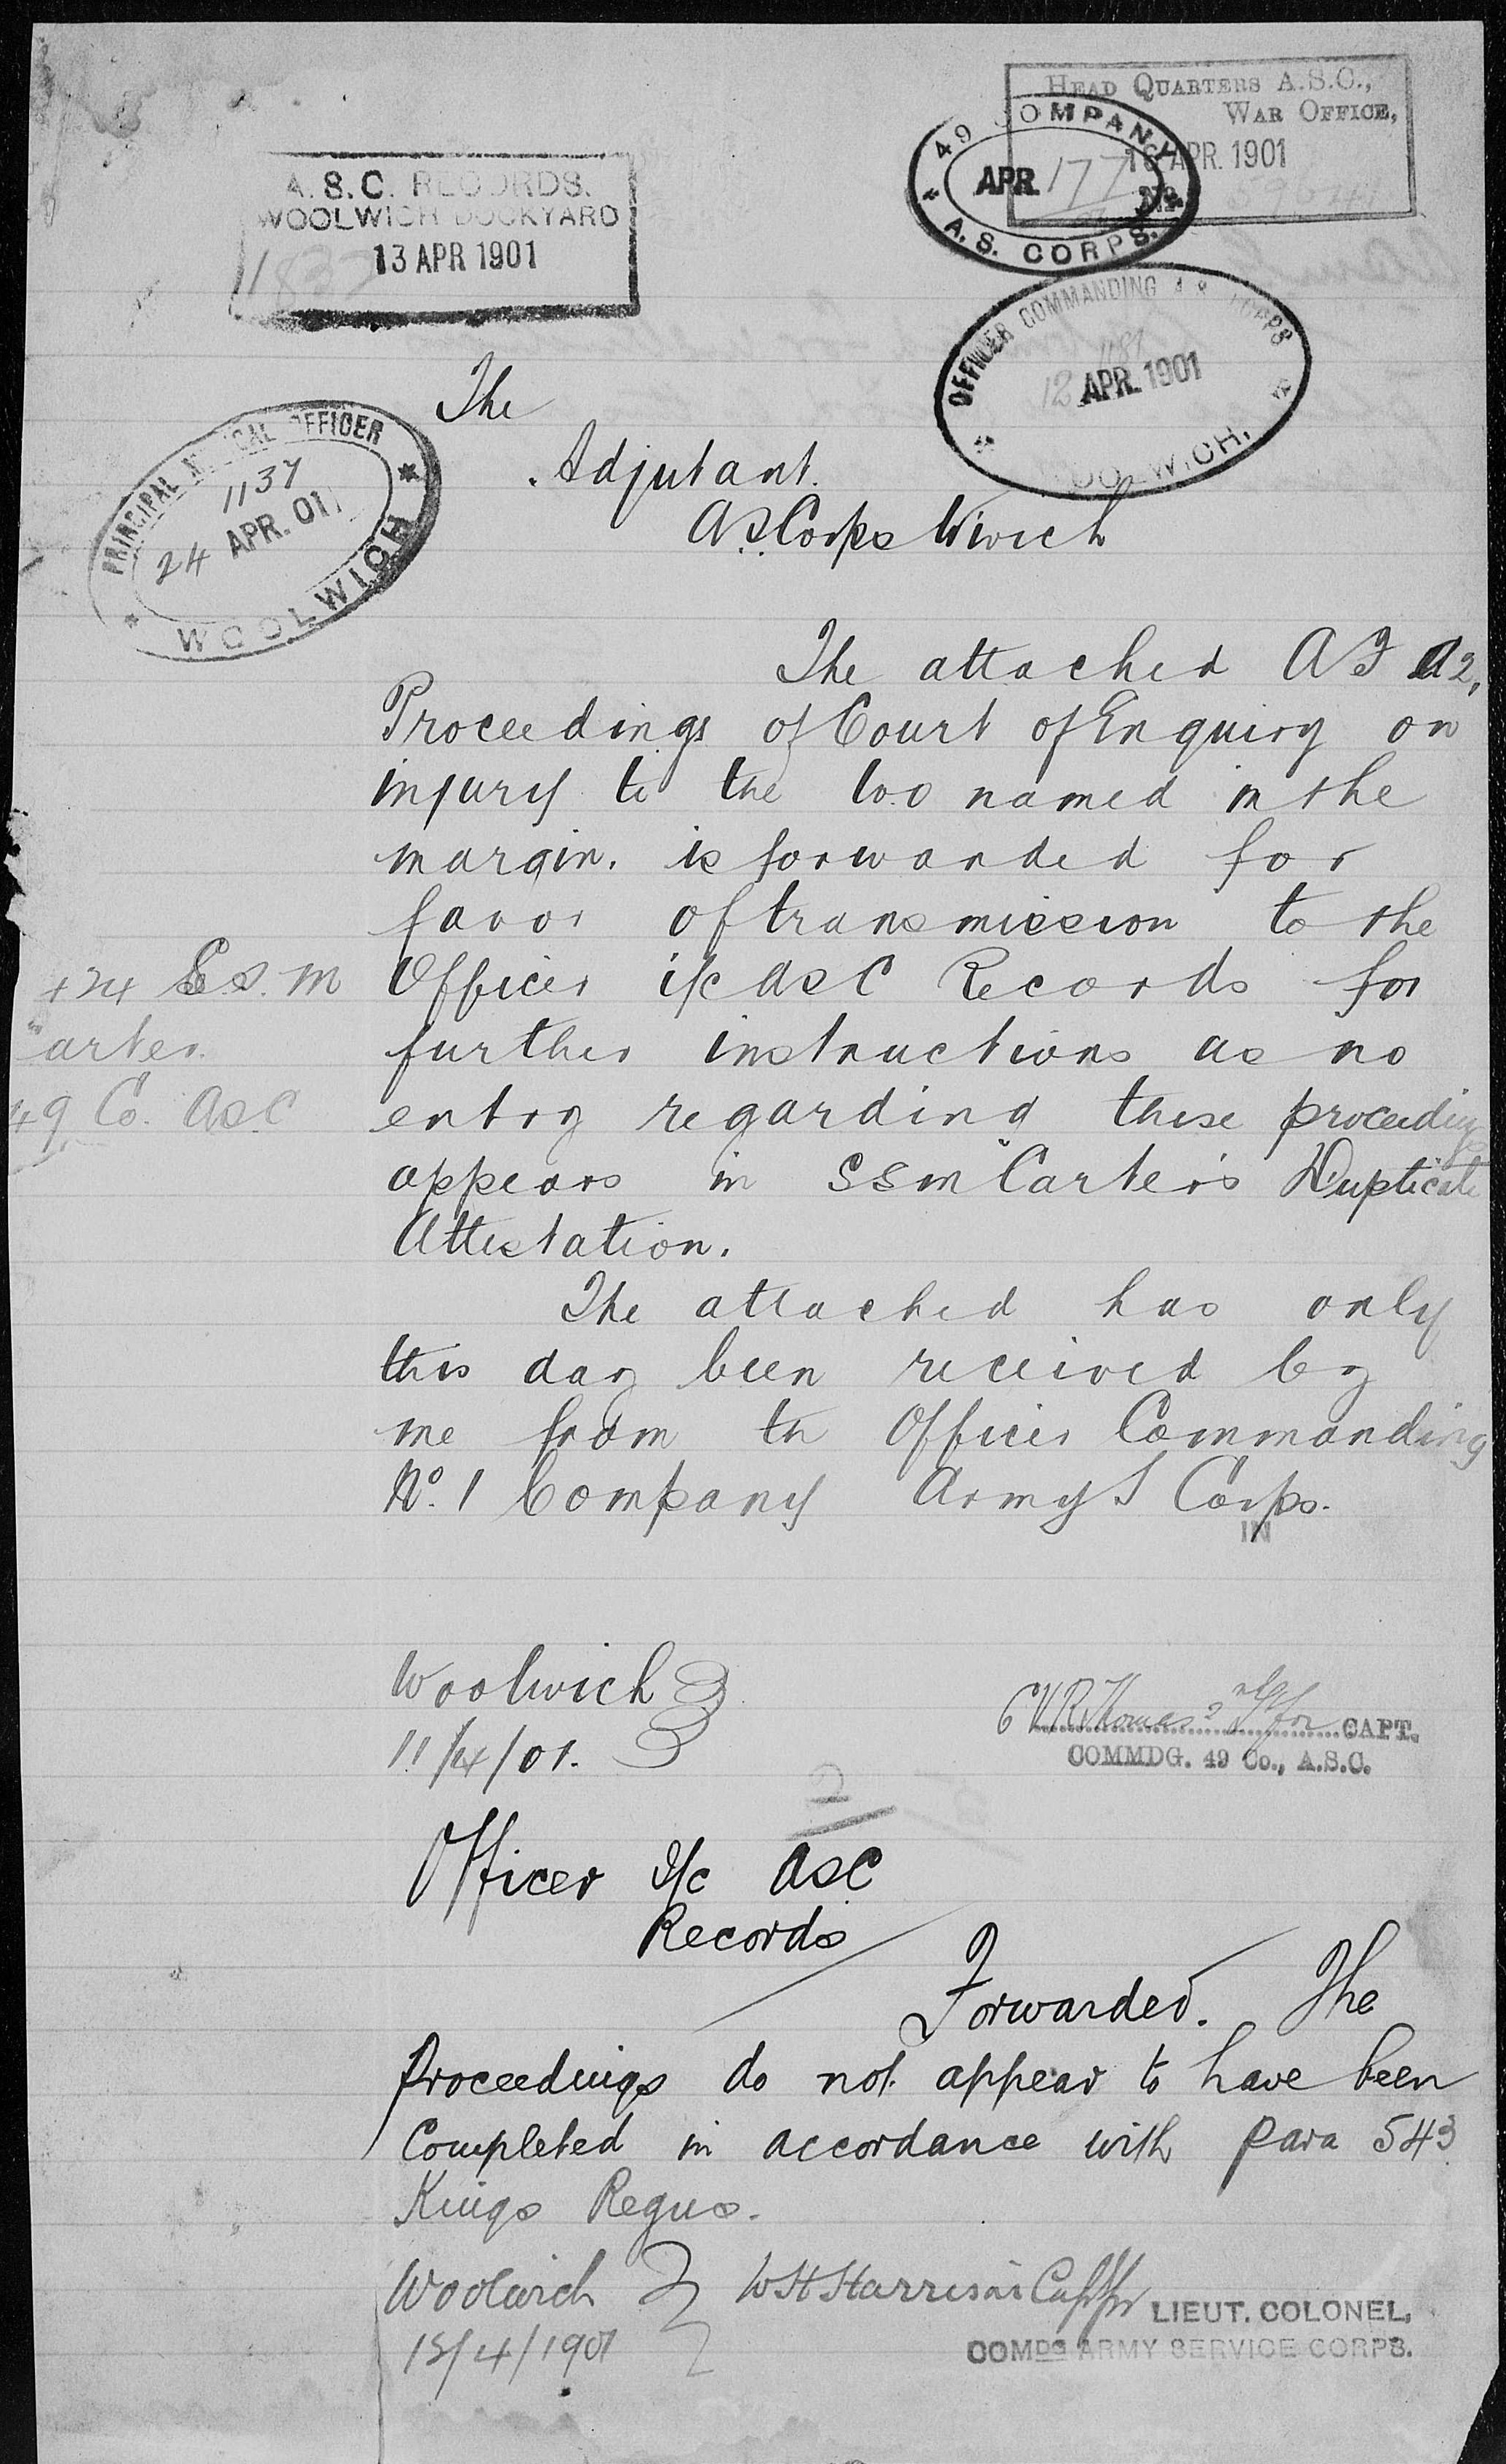 HEAD QUARTERS A.S.C.,
WAR OFFICE,
16 APR. 1901
No.
49 COMPANY
APR. 177
A.S. CORPS.
A.S.C. RECORDS.
WOOLWICH DOCKYARD
13 APR 1901
OFFICER COMMANDING A S CORPS
12 APR. 1901
WOOLWICH.
PRINCIPAL MEDICAL OFFICER
1137
24 APR. 01
WOOLWICH
The
Adjutant.
A.S. Corps Wwich
The attached A F A2,
Proceedings of Court of Enquiry on
injury to the W.O named in the
margin. is forwarded for
favor of transmission to the
Officer i/c ASC Records for
further instructions as no
entry regarding these proceedings
appears in SSM "Carter's Duplicate
Attestation.
S.S.M
Carter.
49 Co. ASC
The attached has only
this day been received by
me from th Officer Commanding
No. 1 Company Army S Corps.
IN
Woolwich
11/4/01.
Thomas 2 for CAPT.
COMMDG. 49 Co., A.S.C.
2
Officer I/c ASC
Records
Forwarded. The
Proceedings do not appear to have been
Completed in accordance with Para 543
Kings Regns.
Woolwich
13/4/1901
WH Harrison Capt for LIEUT. COLONEL,
COMDG ARMY SERVICE CORPS.